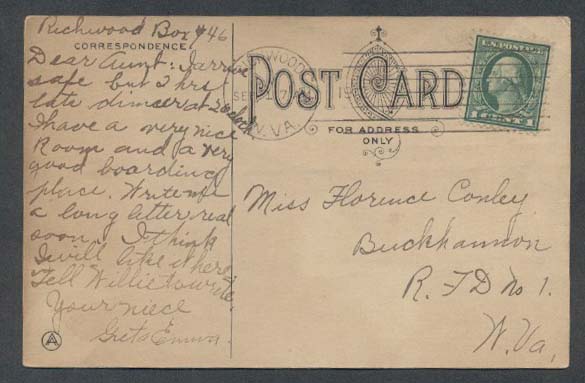 Richwood Box #46
CORRESPONDENCE
Dear Aunt: I arrive
safe but 2 hrs
late dinner at 2 oclock
I have a very nice
Room and a very
good boarding
place. Write me
a long letter real
soon. I think
I will like it here.
Tell Willie to write.
Your niece
Greta Emma.
A
RICHWOOD
SEP 7
W. VA.
POST CARD
FOR ADDRESS
ONLY
U.S. POSTAGE
1 CENT 1
Miss Florence Conley
Buckhannon
R. F D No 1.
W. Va,